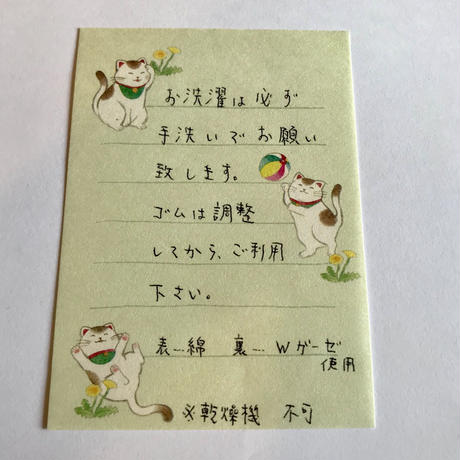 お洗濯は必ず
手洗いでお願い
致します。
ゴムは調整
してから、ご利用
下さい。
表…綿 裏…Wガーゼ
使用
※乾燥機 不可